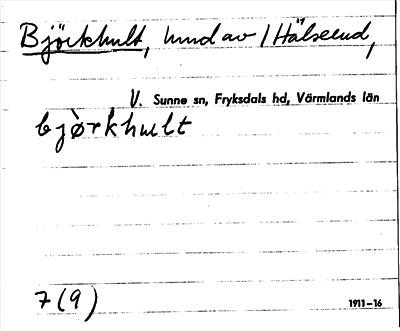 Björkhult, hmd av 1 Hälserud,
V. Sunne sn, Fryksdals hd, Värmlands län
bjo᷃rkhult
7 (9)
1911–16